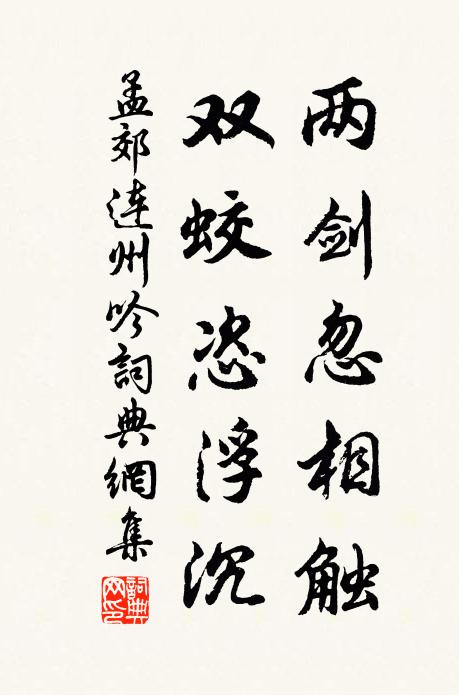 两剑忽相触
双蛟恣浮沉
孟郊连州吟詞典網集
詞典网印